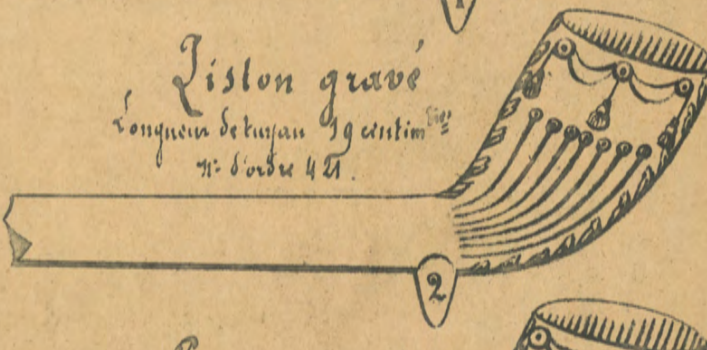 Liston gravé
Longueur de tuyau 19 centim tres
N° d'ordre 421.
2